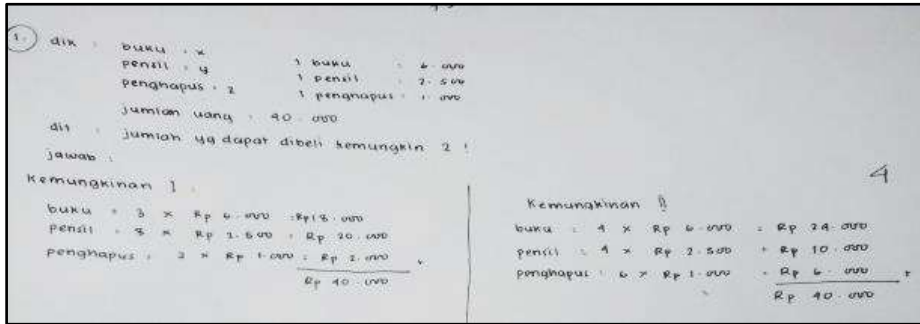 1. dik : buku : x
pensil : y
penghapus : z
1 buku : 6.000
1 pensil : 2.500
1 penghapus : 1.000
jumlah uang : 40.000
dit : jumlah yg dapat dibeli kemungkin 2 !
jawab :
Kemungkinan I :
buku = 3 x Rp 6.000 : Rp 18.000
pensil = 8 x Rp 2.500 : Rp 20.000
penghapus : 2 x Rp 1.000 : Rp 2.000 +
Rp 40.000
4
Kemungkinan II
buku : 4 x Rp 6.000 : Rp 24.000
pensil : 4 x Rp 2.500 : Rp 10.000
penghapus : 6 x Rp 1.000 : Rp 6.000 +
Rp 40.000